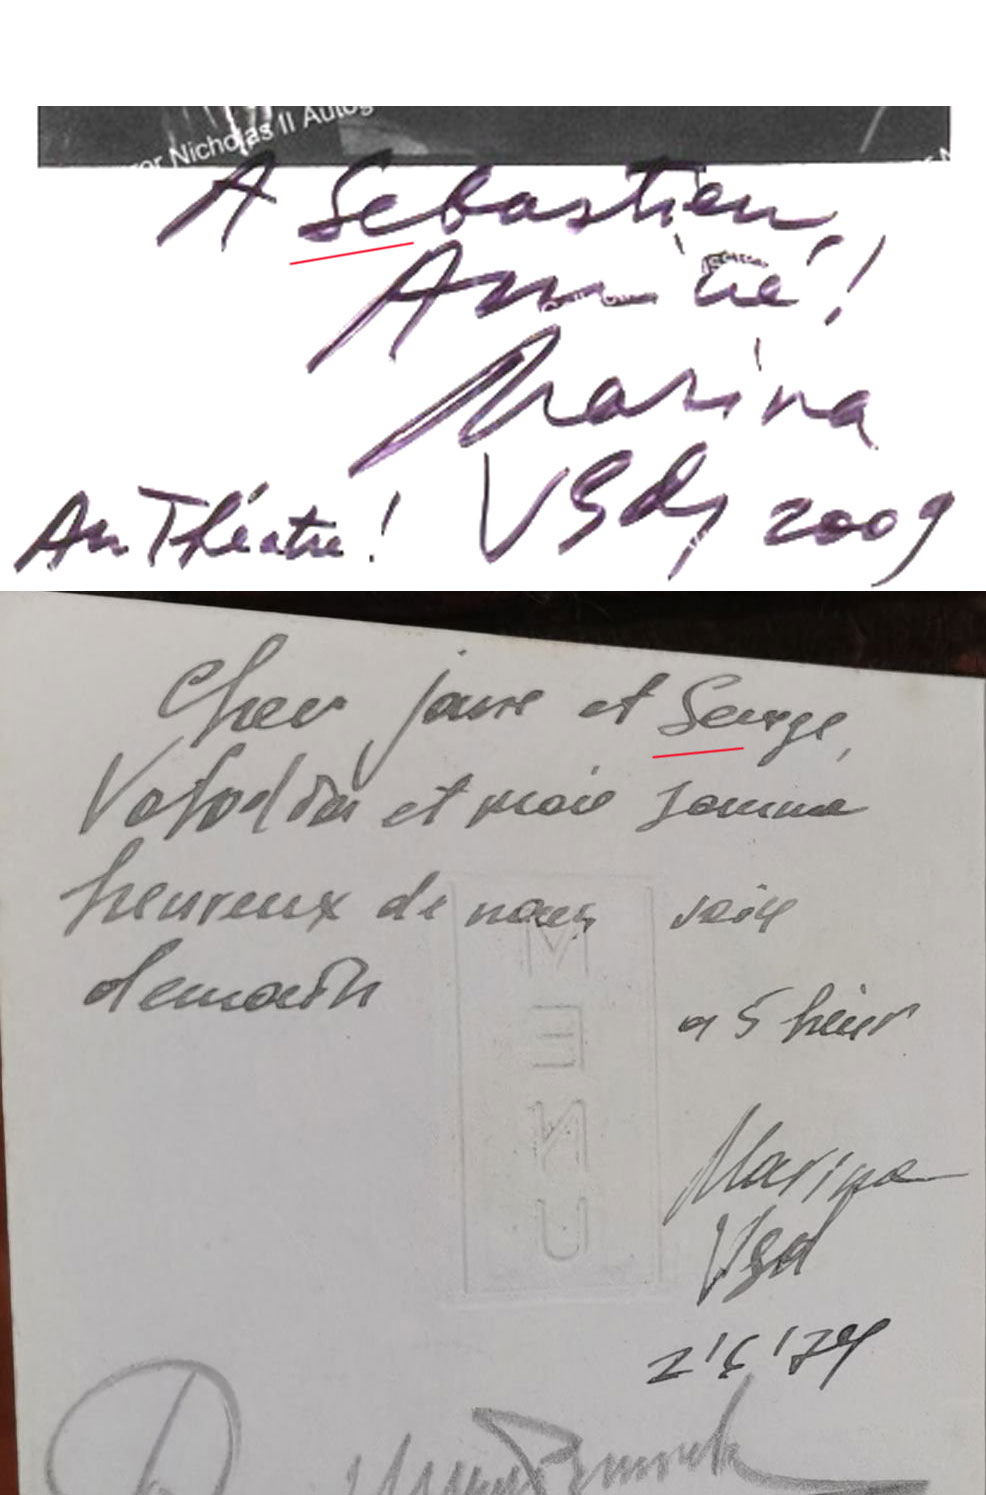 or Nicholas II Autog
A Sebastien,
Amitié!
Marina
Au Théâtre! Vlady 2009
Cher et Serge,
et moi somme
heureux de nous voir
demain
a 5 heur
MENU
Marina
Vlad
2'6'79